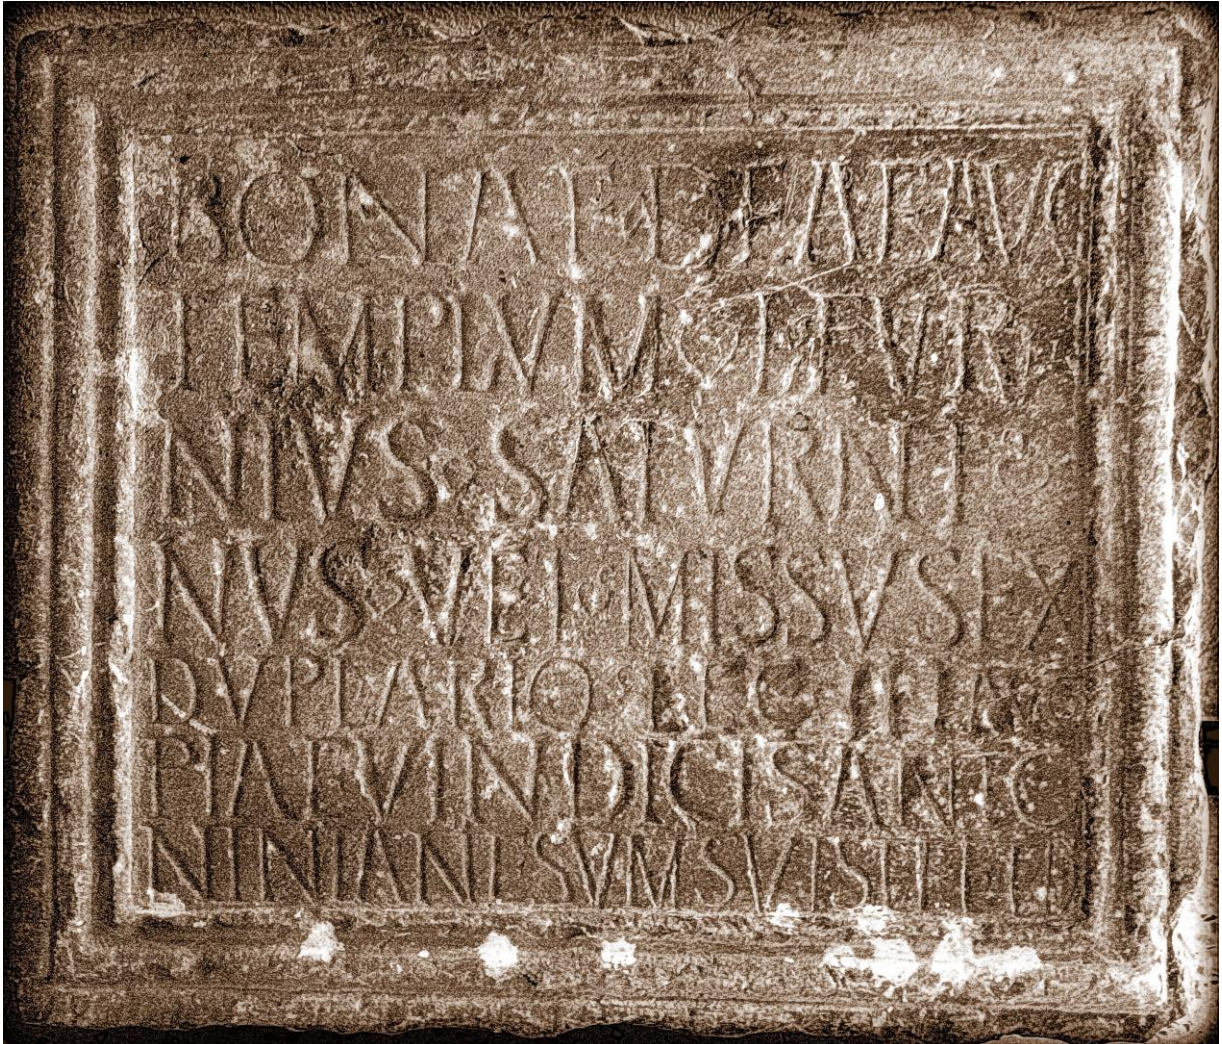 BONAE DEAE AVG
TEMPLVM T FVR
NIVS SATVRNI
NVS VET MISSVS EX
DVPLARIO LEG III AVG
PIAE VINDICIS ANTO
NINIANE SVM SVIS